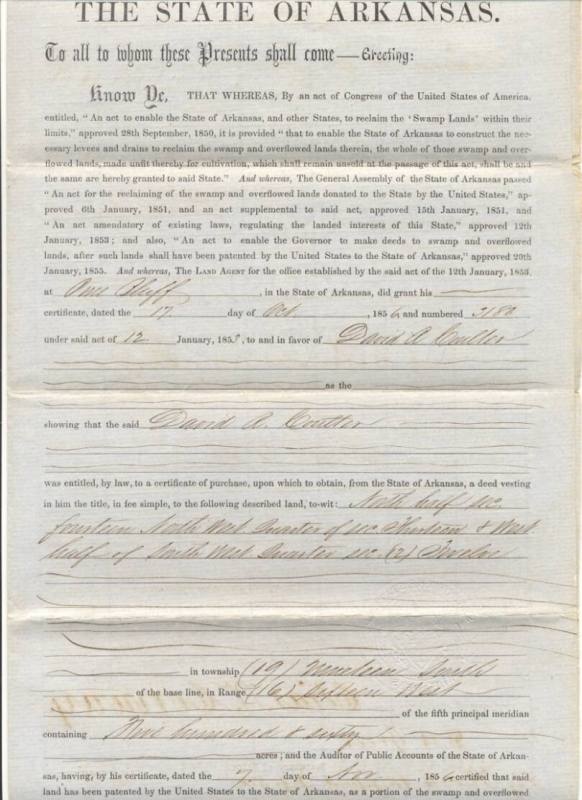 THE STATE OF ARKANSAS.
To all to whom these Presents shall come — Greeting:
Know Ye, THAT WHEREAS, By an act of Congress of the United States of America,
entitled, "An act to enable the State of Arkansas, and other States, to reclaim the 'Swamp Lands' within their
limits," approved 28th September, 1850, it is provided "that to enable the State of Arkansas to construct the nec-
essary levees and drains to reclaim the swamp and overflowed lands therein, the whole of those swamp and over-
flowed lands, made unfit thereby for cultivation, which shall remain unsold at the passage of this act, shall be and
the same are hereby granted to said State." And whereas, The General Assembly of the State of Arkansas passed
"An act for the reclaiming of the swamp and overflowed lands donated to the State by the United States," ap-
proved 6th January, 1851, and an act supplemental to said act, approved 15th January, 1851, and
"An act amendatory of existing laws, regulating the landed interests of this State," approved 12th
January, 1853; and also, "An act to enable the Governor to make deeds to swamp and overflowed
lands, after such lands shall have been patented by the United States to the State of Arkansas," approved 20th
January, 1855. And whereas, The LAND AGENT for the office established by the said act of the 12th January, 1853,
at Pine Bluff, in the State of Arkansas, did grant his
certificate, dated the 17 day of Oct, 1856 and numbered 2180
under said act of 12 January, 185, to and in favor of David A. Coulter
as the
showing that the said David A. Coulter
was entitled, by law, to a certificate of purchase, upon which to obtain, from the State of Arkansas, a deed vesting
in him the title, in fee simple, to the following described land, to-wit: North half sec.
fourteen North West Quarter of sec Thirteen & West
half of South West Quarter sec. Twelve
in township (19) Nineteen South
of the base line, in Range (16) Sixteen West
of the fifth principal meridian
containing Five hundred & sixty
acres; and the Auditor of Public Accounts of the State of Arkan-
sas, having, by his certificate, dated the 7 day of Nov, 1856 certified that said
land has been patented by the United States to the State of Arkansas, as a portion of the swamp and overflowed